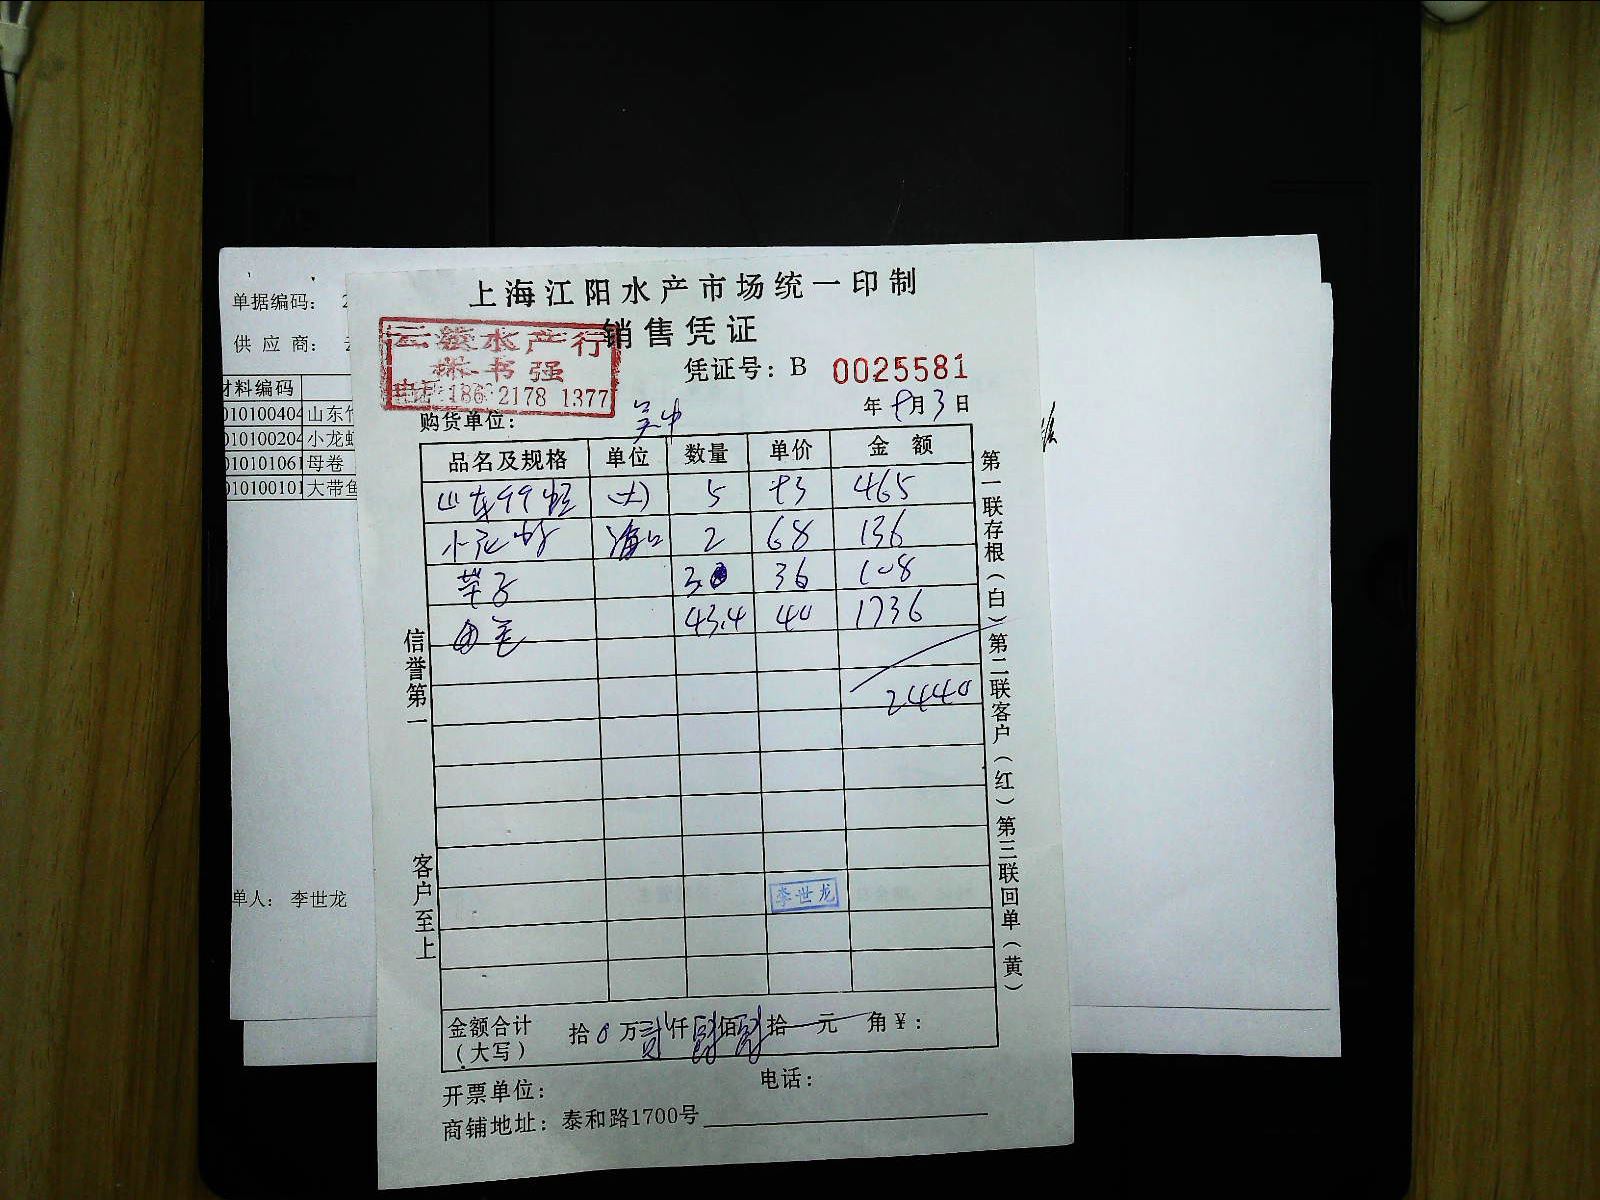 单据编码： 2
供 应 商：
材料编码
010100404 山东竹
010100204 小龙虾
010101061 母卷
010100101 大带鱼
单人： 李世龙
上海江阳水产市场统一印制
销售凭证
水产行
书强
电话：186 2178 1377
凭证号：B 0025581
年 9月3日
购货单位： 吴中
品名及规格 单位 数量 单价 金 额
山东竹节虾 (大) 5 93 465
小龙虾 海口 2 68 136
带子 3.0 36 108
43.4 40 1736
2440
李世龙
金额合计（大写） 拾0万贰仟肆佰肆拾一元 角￥：
开票单位： 电话：
商铺地址：泰和路1700号
信誉第一 客户至上
第一联存根（白）第二联客户（红）第三联回单（黄）